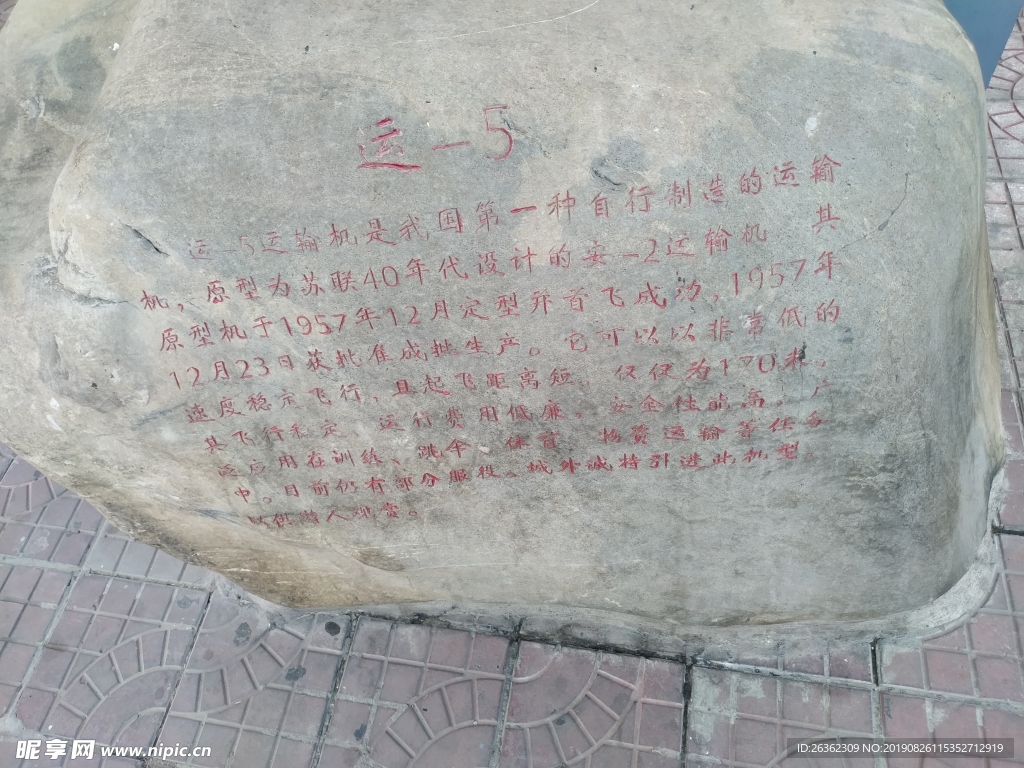 运-5
运-5运输机是我国第一种自行制造的运输
机，原型为苏联40年代设计的安-2运输机 其
原型机于1957年12月定型并首飞成功，1957年
12月23日获批准成批生产。它可以以非常低的
速度稳示飞行，且起飞距离短，仅仅为170米，
其飞行稳定、运行费用低廉。安全性能高，广
泛应用在训练、跳伞、保育、物资运输等任务
中。目前仍有部分服役。城外诚特引进此机型。
以供游人观赏。
昵享网 www.nipic.cn
ID:26362309 NO:20190826115352712919